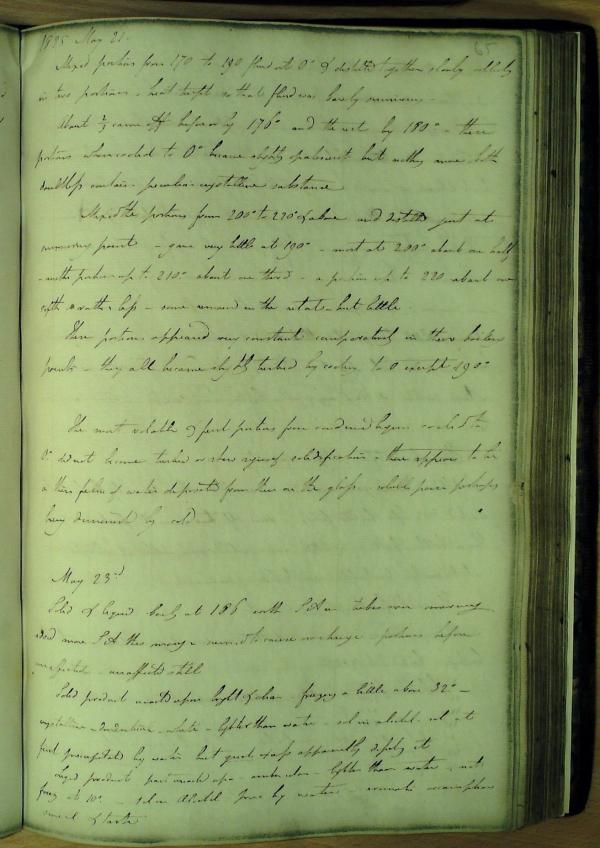 1825 May 21.
65
Mixed portions from 170 to 190 fluid at 0° & distilled together slowly
in two portions - heat kept so that fluid was barely
About 2/3 came off before or by 176° and the rest by 180° - these
portions when cooled to 0° became slightly opalescent but nothing more both
doubtless contain peculiar crystalline substance
Mixed the portions from 200° to 220° & above and distilled just at
point - gave very little at 190° - most at 200° about one half
- another portion up to 210° about one third - a portion up to 220 about one
or rather less - some remained in the retort but little.
These portions appeared very constant comparatively in their boiling
points - they all became slightly turbid by cooling to 0 except 190°
The most volatile & first portions from condensed liquors cooled to
0° did not become turbid or show signs of solidification - there appears to be
a thin film of water deposited from them on the glass - soluble power perhaps
being diminished by cold
May 23rd
Solid & liquid body at 186 with S A in tubes over mercury
added more S A this morning seemed to cause no change portions before
unaffected - unaffected still
Solid product bright & clear - freezing a little above 32° -
crystalline - white - lighter than water - sol in alcohol - sol at
first precipitated by water but great excess apparently
Liquid product - lighter than water - not
at 10° - sol in Alcohol by water -
& taste